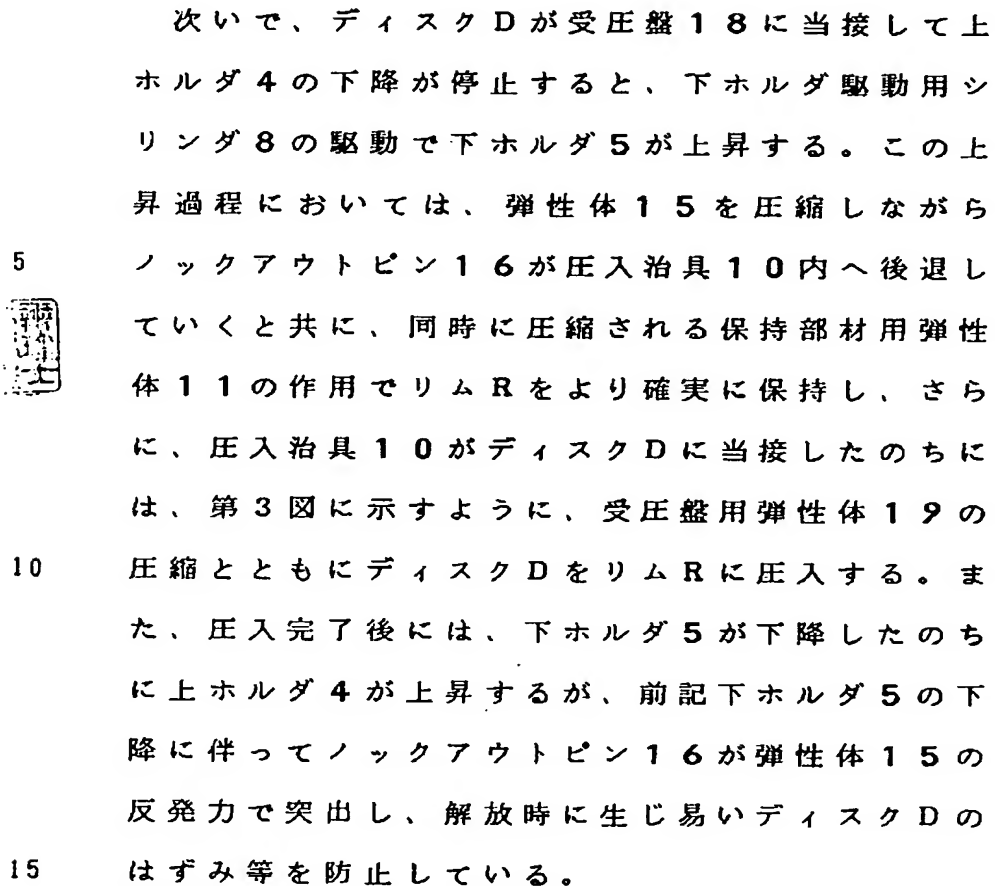 次いで、ディスクDが受圧盤18に当接して上
ホルダ4の下降が停止すると、下ホルダ駆動用シ
リンダ8の駆動で下ホルダ5が上昇する。この上
昇過程においては、弾性体15を圧縮しながら
5 ノックアウトピン16が圧入治具10内へ後退し
ていくと共に、同時に圧縮される保持部材用弾性
体11の作用でリムRをより確実に保持し、さら
に、圧入治具10がディスクDに当接したのちに
は、第3図に示すように、受圧盤用弾性体19の
10 圧縮とともにディスクDをリムRに圧入する。ま
た、圧入完了後には、下ホルダ5が下降したのち
に上ホルダ4が上昇するが、前記下ホルダ5の下
降に伴ってノックアウトピン16が弾性体15の
反発力で突出し、解放時に生じ易いディスクDの
15 はずみ等を防止している。